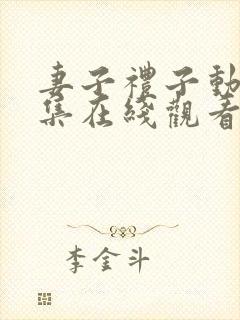 妻子禮子動
集在綫觀看
李金斗